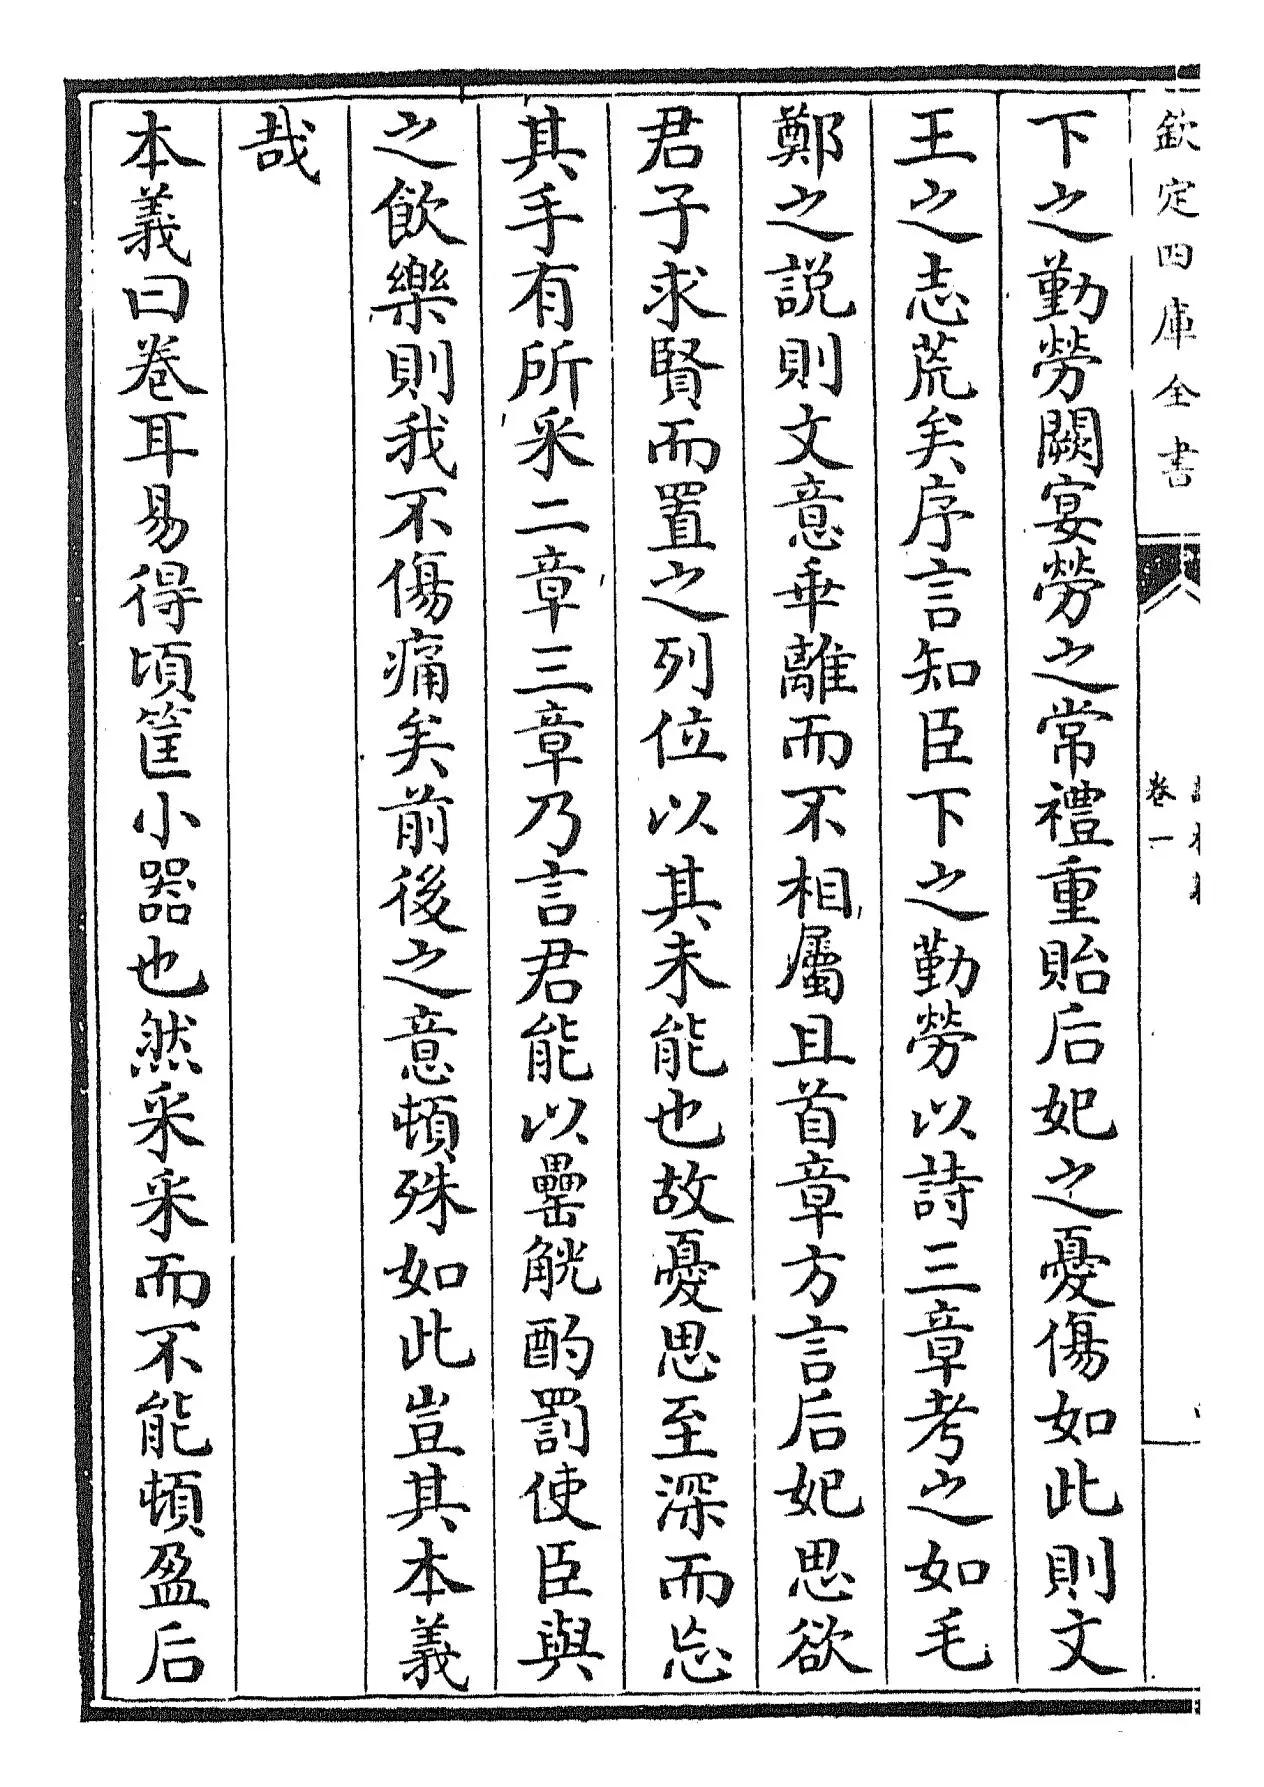 欽定四庫全書
卷一
下之勤勞闕宴勞之常禮重貽后妃之憂傷如此則文
王之志荒矣序言知臣下之勤勞以詩三章考之如毛
鄭之説則文意乖離而不相屬且首章方言后妃思欲
君子求賢而置之列位以其未能也故憂思至深而忘
其手有所采二章三章乃言君能以罍觥酌罰使臣與
之飲樂則我不傷痛矣前後之意頓殊如此豈其本義
哉
本義曰卷耳易得頃筐小器也然采采而不能頓盈后